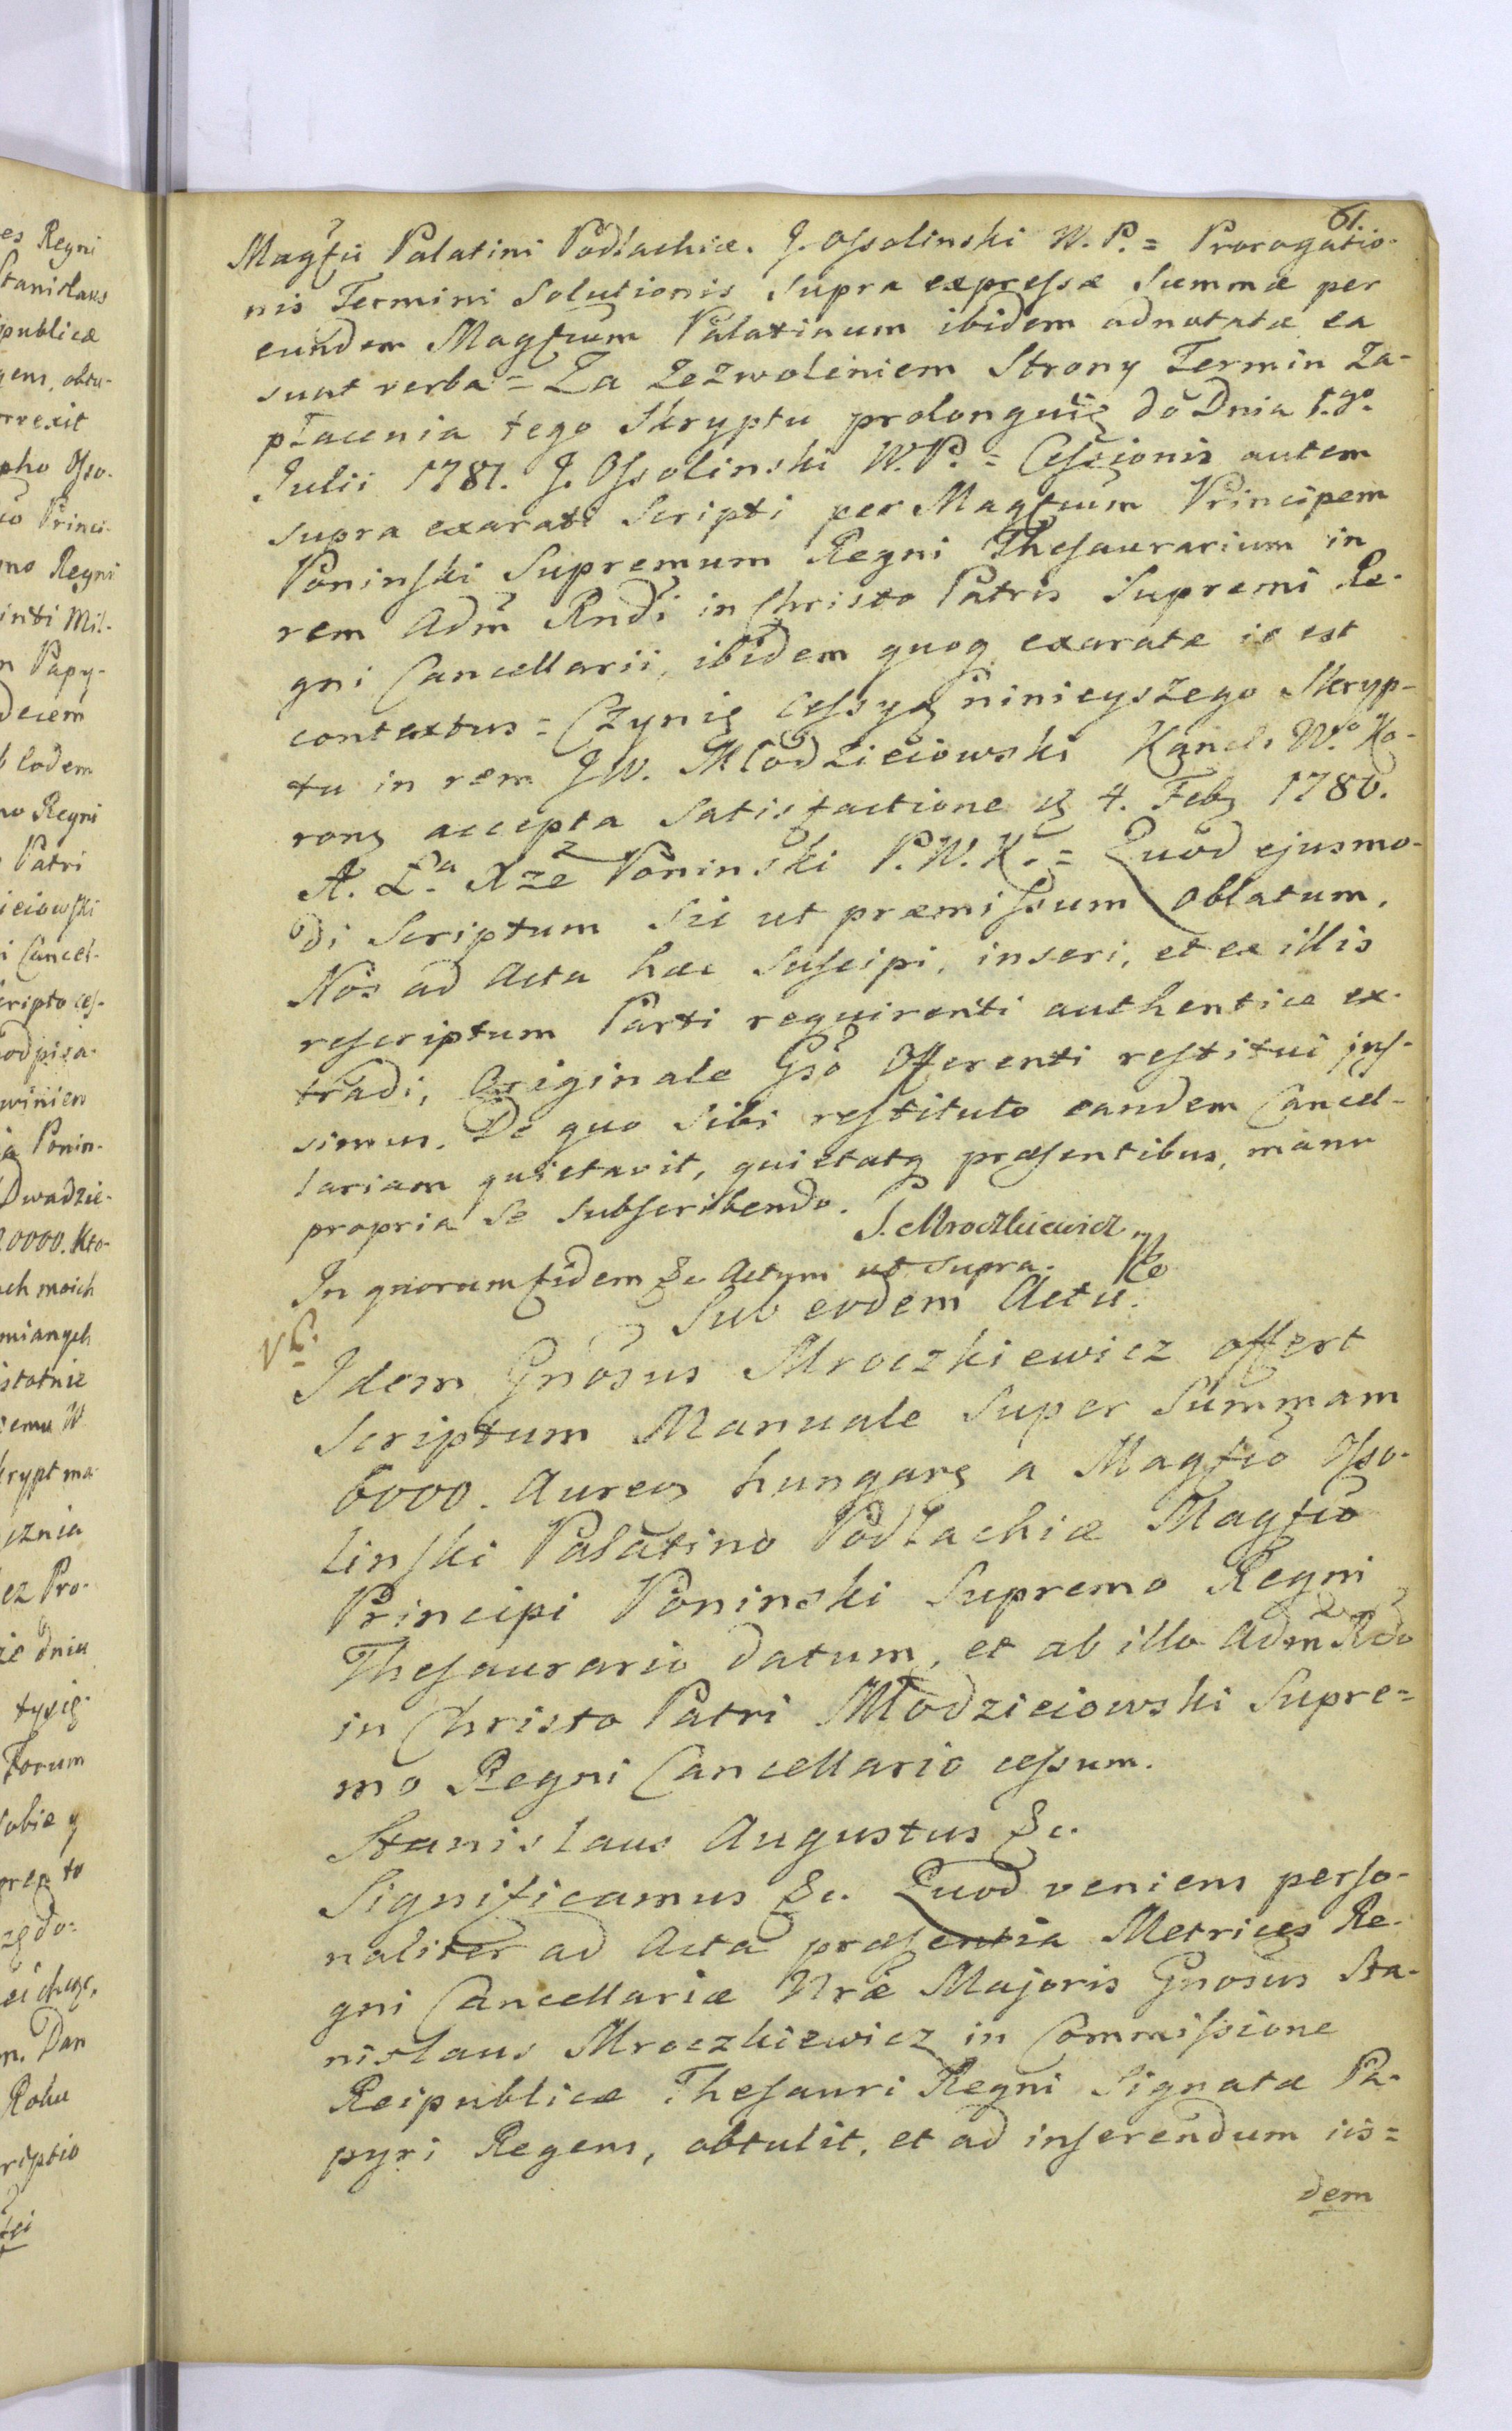 61.
Magfci Palatini Podlachiæ. J. Ossolinski W. P. = Prorogatio-
nis Termini Solutionis supra expressæ Summæ per
eundem Magfcum Palatinum ibidem adnotatæ ea
sunt verba = Za Zezwoleniem Strony Termin Za-
płacenia tego Skryptu prolonguię do Dnia 1.go
Julii 1781. J. Ossolinski W. P. = Cessionis autem
supra exarati Scripti per Magfcum Principem
Poninski Supremum Regni Thesaurarium in
rem Adm Rndi in Christo Patris Supremi Re-
gni Cancellarii, ibidem quoq exaratæ is est
contextus = Czynię cessyą ninieyszego Skryp-
tu in rem JW. Młodzieiowski Kancl. W.o Ko-
rony accepta Satisfactione 4. Feb 1780.
A. Ł.a Xże Poninski P. W. K. = Quod ejusmo-
di Scriptum Sic ut præmissum oblatum,
Nos ad Acta hæc suscipi, inseri, et ex illis
rescriptum Parti requirenti authentice ex-
tradi, Originale Gso Offerenti restitui jus-
simus. De quo sibi restituto eandem Cancel-
lariam quietavit, quietatq præsentibus, manu
propria se subscribendo.
S. Mroczkiewicz
In quorum fidem &c. Actum ut supra.
Sub eodem Actu.
Idem Gnosus Mroczkiewicz offert
Scriptum Manuale super Summam
6000. Aureos hungar a Magfco Osso-
linski Palatino Podlachiæ Magfco
Principi Poninski Supremo Regni
Thesaurario datum, et ab illo Adm Rdo
in Christo Patri Młodzieiowski Supre=
mo Regni Cancellario cessum.
Stanislaus Augustus &c.
Significamus &c. Quod veniens perso-
naliter ad Acta præsentia Metrices Re-
gni Cancellariæ Nræ Majoris Gnosus Sta-
nislaus Mroczkiewicz in Commissione
Reipublicæ Thesauri Regni Signatæ Pa-
pyri Regens, obtulit, et ad inserendum iis=
dem